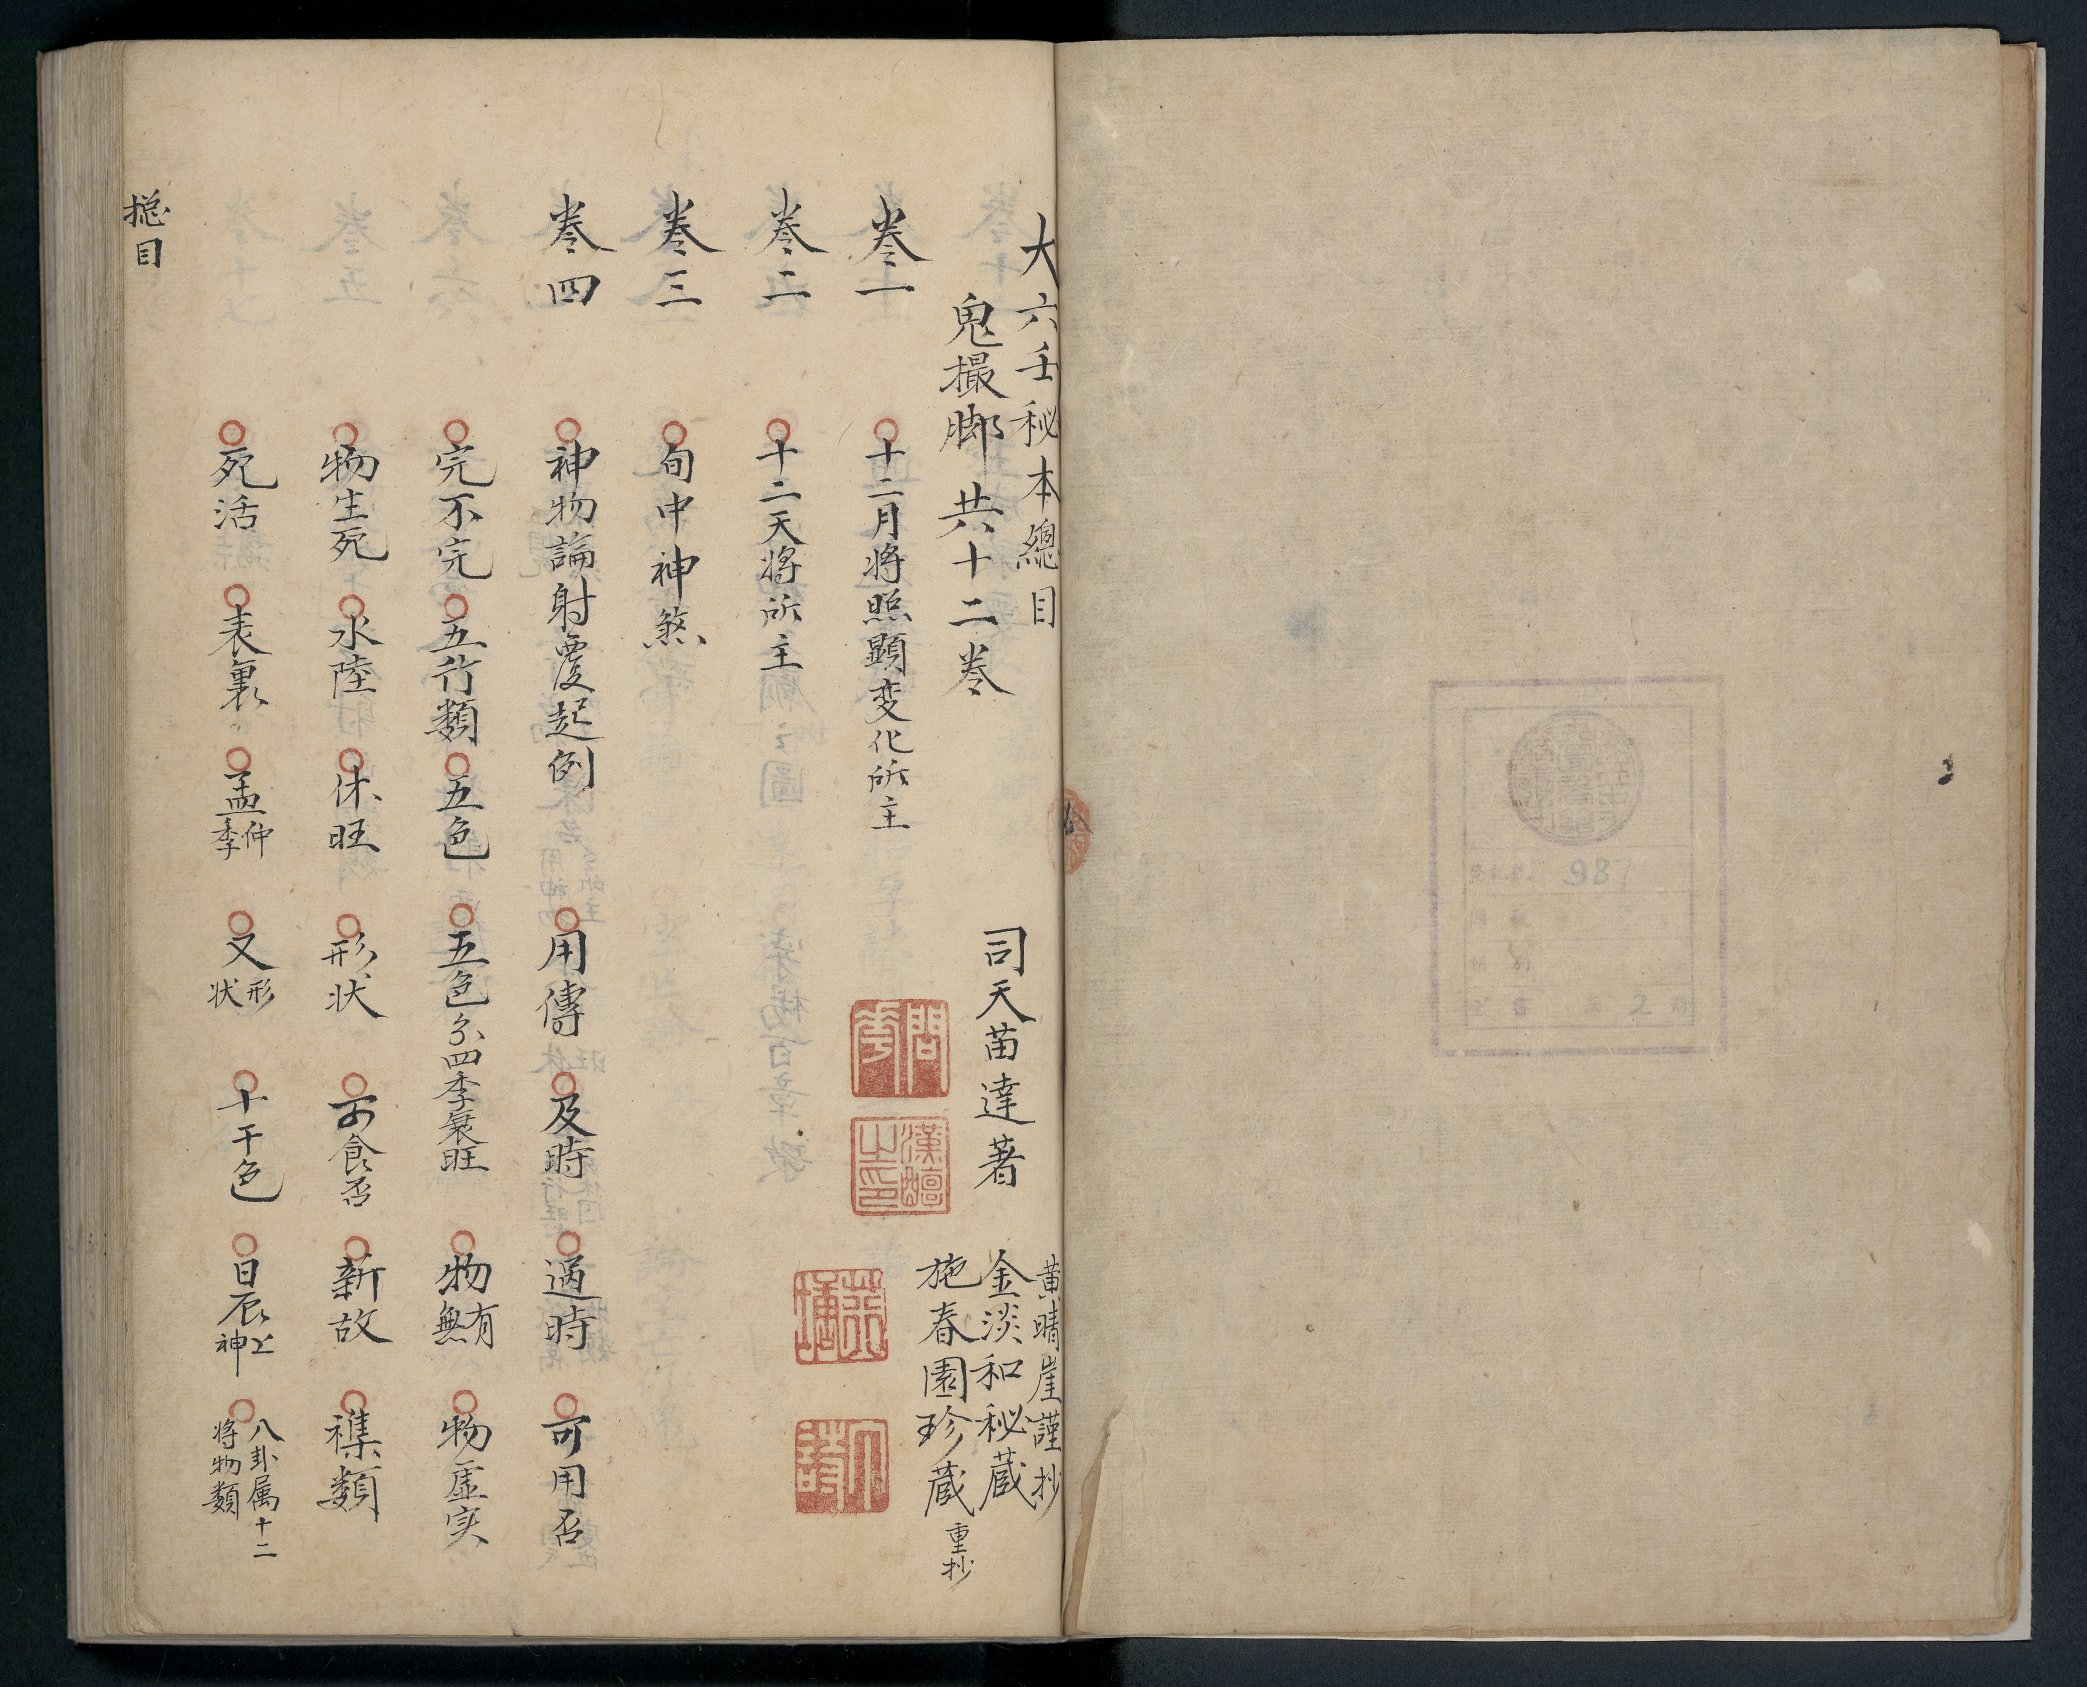 大六壬秘本總目
鬼撮脚共十二卷
司天苗達著
黄晴崖謹抄
金淡和秘蔵
施春園珍蔵重抄
卷一 十二月将照顕变化所主
卷二 十二天将所主
卷三 旬中神煞
卷四 神物論射覆起例 用傳 及時 過時 可用否
完不完 五行類 五色 五色分四季衰旺 物有無 物虚实
物生死 水陸 休旺 形状 可食否 新故 襍類
死活 表裏 孟仲季 又形状 十干色 日辰上神 八卦属十二将物類
摠目
問
漢
之印
987
2